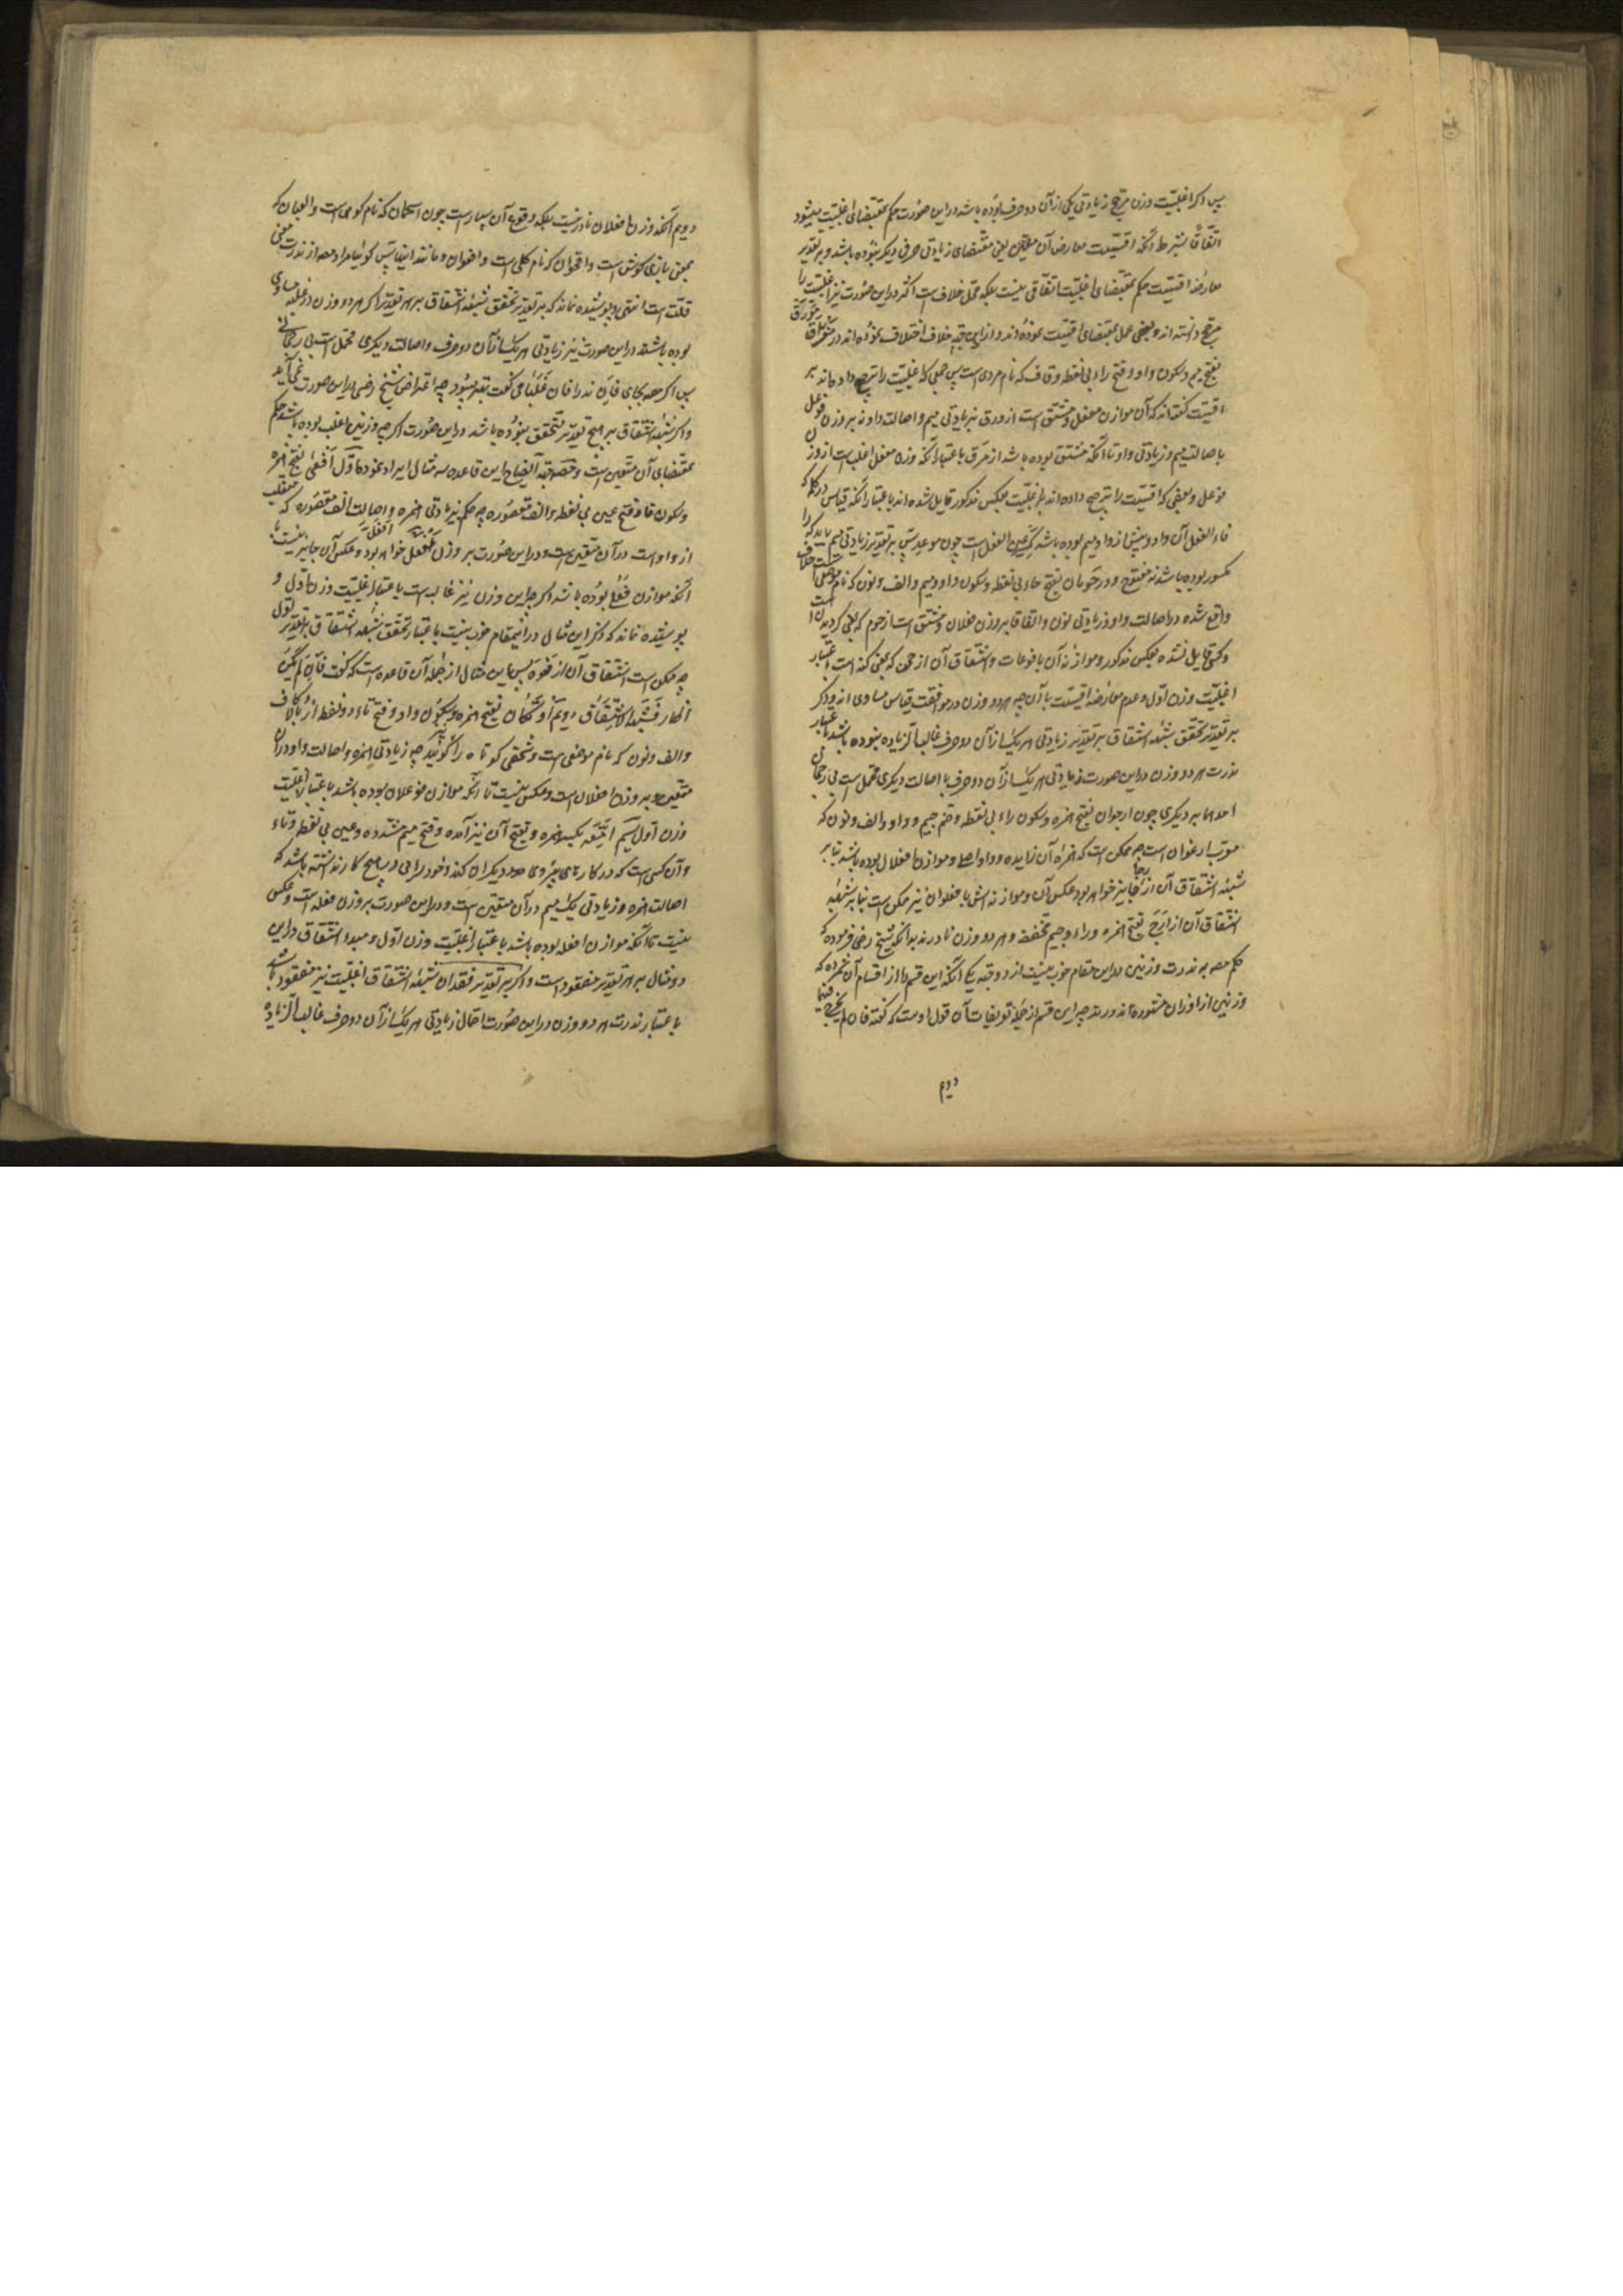 پس اگر اغلبیّت وزن مرجّح زیادتی یکی از آن دو حرف بوده باشد در این صورت حکم بمقتضای اغلبیّت میشود
اتفاقاً بشرط آنکه اقیسیّت معارض آن یعنی مقتضای زیادتی حرفی دیگر نبوده باشد و بر تقدیر
معارضه اقیسیّت حکم بمقتضای اغلبیّت اتفاقی نیست بلکه محلّ خلاف است اکثر در این صورت نیز اغلبیّت را
مرجّح دانسته اند و بعضی عمل بمقتضای اقیسیّت نموده اند و از این جهة خلاف اختلاف نموده اند در مورق
بفتح میم و سکون واو و فتح راء بی نقطه و قاف که نام مردی است پس جمعی که اغلبیّت را ترجیح داده اند بر
اقیسیّت گفته اند که آن موازن مفعل و مشتق است از ورق بزیادتی میم و اصالت واو نه بر وزن فوعل
باصالت میم و زیادتی واو تا آنکه مشتق بوده باشد از مرق باعتبار آنکه وزن مفعل اغلب است از وزن
فوعل و بعضی که اقیسیّت را ترجیح داده اند بر اغلبیّت بعکس مذکور قایل شده اند باعتبار آنکه قیاس در کلمه که
فاء الفعل آن واو و پیش از واو میم بوده باشد کسر عین الفعل است چون موعد پس بر تقدیر زیادتی میم باید که را
مکسور بوده باشد نه مفتوح و در حومان بفتح حاء بی نقطه و سکون واو و میم و الف و نون که نام موضعی است خلاف
واقع نشده در اصالت واو و زیادتی نون و اتفاقا بر وزن فعلان و مشتق است از حوم که بمعنی گردیدن است
و کسی قایل نشده بعکس مذکور و موازنه آن با فوعال و اشتقاق آن از حمن که بمعنی کنه است باعتبار
اغلبیّت وزن اوّل و عدم معارضه اقیسیّت با آن چه هر دو وزن در موافقت قیاس مساوی اند و اگر
بر تقدیر تحقق شبهه اشتقاق بر تقدیر زیادتی هر یک از آن دو حرف غالب الزیاده نبوده باشد باعتبار
ندرت هر دو وزن در این صورت زیادتی هر یک از آن دو حرف با اصالت دیگری محتمل است بی رجحان
احدهما بر دیگری چون ارجوان بفتح همزه و سکون راء بی نقطه و ضم جیم و واو و الف و نون که
معرّب ارغوان است چه ممکن است که همزه آن زایده و واو اصلی و موازن افعلان بوده باشد بنابر
شبهه اشتقاق آن از رجا نیز خواهد بود عکس آن و موازنه اش با فعلوان نیز ممکن است بنابر شبهه
اشتقاق آن از ارج بفتح همزه و راء و جیم مخففه و هر دو وزن نادرند بدانکه شیخ رضی فرموده که
حکم مصه به ندرت وزنین در این مقام خوب نیست از دو جهة یکی آنکه این قسم را از اقسام آن شمرده که
وزنین از اوزان مشهوره اند و در ندرت چه این قسم از جمله تعریفات آن قول اوست که گفته فان لم یخرج فیهما
دویم
دویم آنکه وزن افعلان نادر نیست بلکه وقوع آن بسیار است چون اسحمان که نام کوهی است و العبان که
بمعنی بازی کوش است و اقحوان که نام گلی است و افعوان و مانند اینها پس گوئیا مراد مصه از ندرت معنی
قلّت است انتهی و پوشیده نماند که بر تقدیر تحقق شبهه اشتقاق بر هر تقدیر اگر هر دو وزن در غلبه مساوی
بوده باشند در این صورت نیز زیادتی هر یک از آن دو حرف و اصالت دیگری محتمل است بی رجحانی
پس اگر مصه بجای فان ندرا فان غلبا می گفت بهتر میبود چه اعتراض شیخ رضی در این صورت نمی آید
و اگر شبهه اشتقاق بر هیچ تقدیر متحقق نبوده باشد در این صورت اگر چه وزنین اغلب بوده باشد حکم
بمقتضای آن متعین است و مصه جهة ایضاح این قاعده سه مثال ایراد نموده اوّل افعی بفتح همزه
و سکون فاء و فتح عین بی نقطه و الف مقصوره چه حکم بزیادتی همزه و اصالت الف مقصوره که منقلب
از واو است در آن متعین است و در این صورت بر وزن افعل خواهد بود و عکس آن جایز نیست تا
آنکه موازن فعلی بوده باشد اگر چه این وزن نیز غالب است باعتبار اغلبیّت وزن اوّل و
پوشیده نماند که ذکر این مثال در اینمقام خوب نیست باعتبار تحقق شبهه اشتقاق بر تقدیر اوّل
چه ممکن است اشتقاق آن از فعوه پس این مثال از جمله آن قاعده است که گفت فان لم یکن
اظهار فشبهة الاشتقاق دویم اوتکان بفتح همزه و سکون واو و فتح تاء دو نقطه از بالا و کاف
و الف و نون که نام موضعی است و شخصی کوتاه را گویند چه زیادتی همزه و اصالت واو در آن
متعین و بر وزن افعلان است و عکس نیست تا آنکه موازن فوعلان بوده باشد باعتبار اغلبیّت
وزن اوّل سیّم امّعه بکسر همزه و بفتح آن نیز آمده و فتح میم مشدده و عین بی نقطه و تاء
و آن کسی است که در کارهای پیروی دیگران کند و خود رایی و صلاح کار نداشته باشد که
اصالت همزه و زیادتی یک میم در آن متعین است و در این صورت بر وزن فعله است و عکس
نیست تا آنکه موازن افعله بوده باشد باعتبار اغلبیّت وزن اوّل و مبدء اشتقاق در این
دو مثال بر هر تقدیر مفقود است و اگر بر تقدیر فقدان شبهه اشتقاق اغلبیّت نیز مفقود باشد
باعتبار ندرت هر دو وزن در این صورت احتمال زیادتی هر یک از آن دو حرف غالب الزیاده